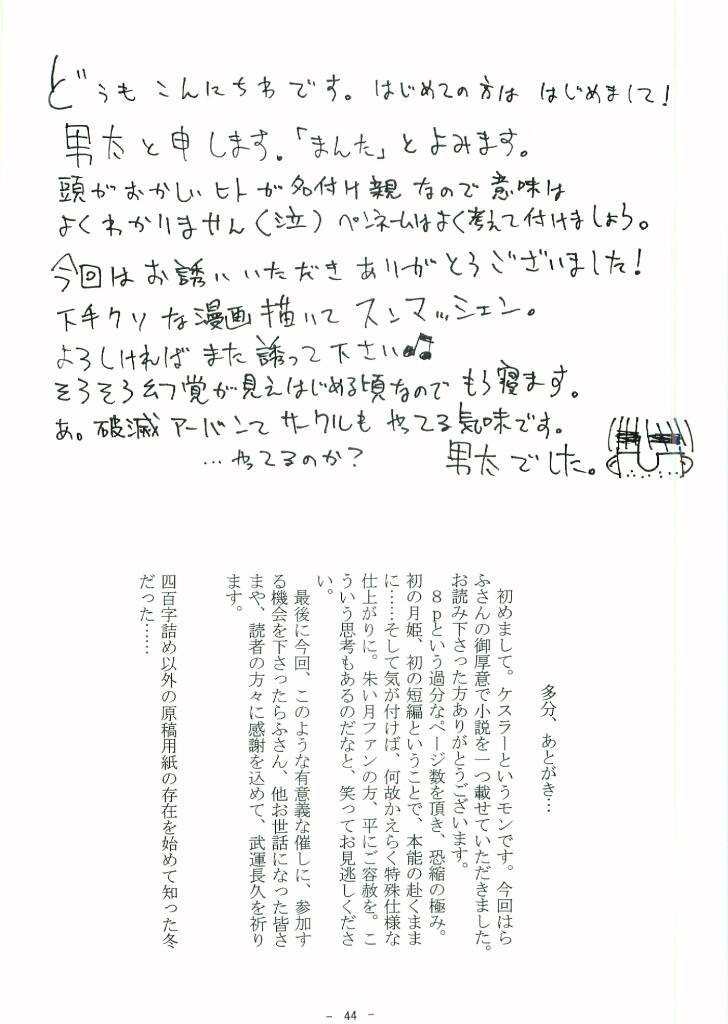 どうもこんにちわです。はじめての方は はじめまして!
男太と申します。「まんた」とよみます。
頭がおかしいヒトが名付け親なので意味は
よくわかりません(泣)ペンネームはよく考えて付けましょう。
今回はお誘いいただきありがとうございました!
下手クソな漫画描いてスンマッシェン。
よろしければまた誘って下さい♫
そろそろ幻覚が見えはじめる頃なのでもう寝ます。
あ。破滅アーバンてサークルもやってる気味です。
…やってるのか?
男太でした。
多分、あとがき…
初めまして。ケスラーというモンです。今回はら
ふさんの御厚意で小説を一つ載せていただきました。
お読み下さった方ありがとうございます。
8pという過分なページ数を頂き、恐縮の極み。
初の月姫、初の短編ということで、本能の赴くまま
に……そして気が付けば、何故かえらく特殊仕様な
仕上がりに。朱い月ファンの方、平にご容赦を。こ
ういう思考もあるのだなと、笑ってお見逃しくださ
い。
最後に今回、このような有意義な催しに、参加す
る機会を下さったらふさん、他お世話になった皆さ
まや、読者の方々に感謝を込めて、武運長久を祈り
ます。
四百字詰め以外の原稿用紙の存在を始めて知った冬
だった……
- 44 -